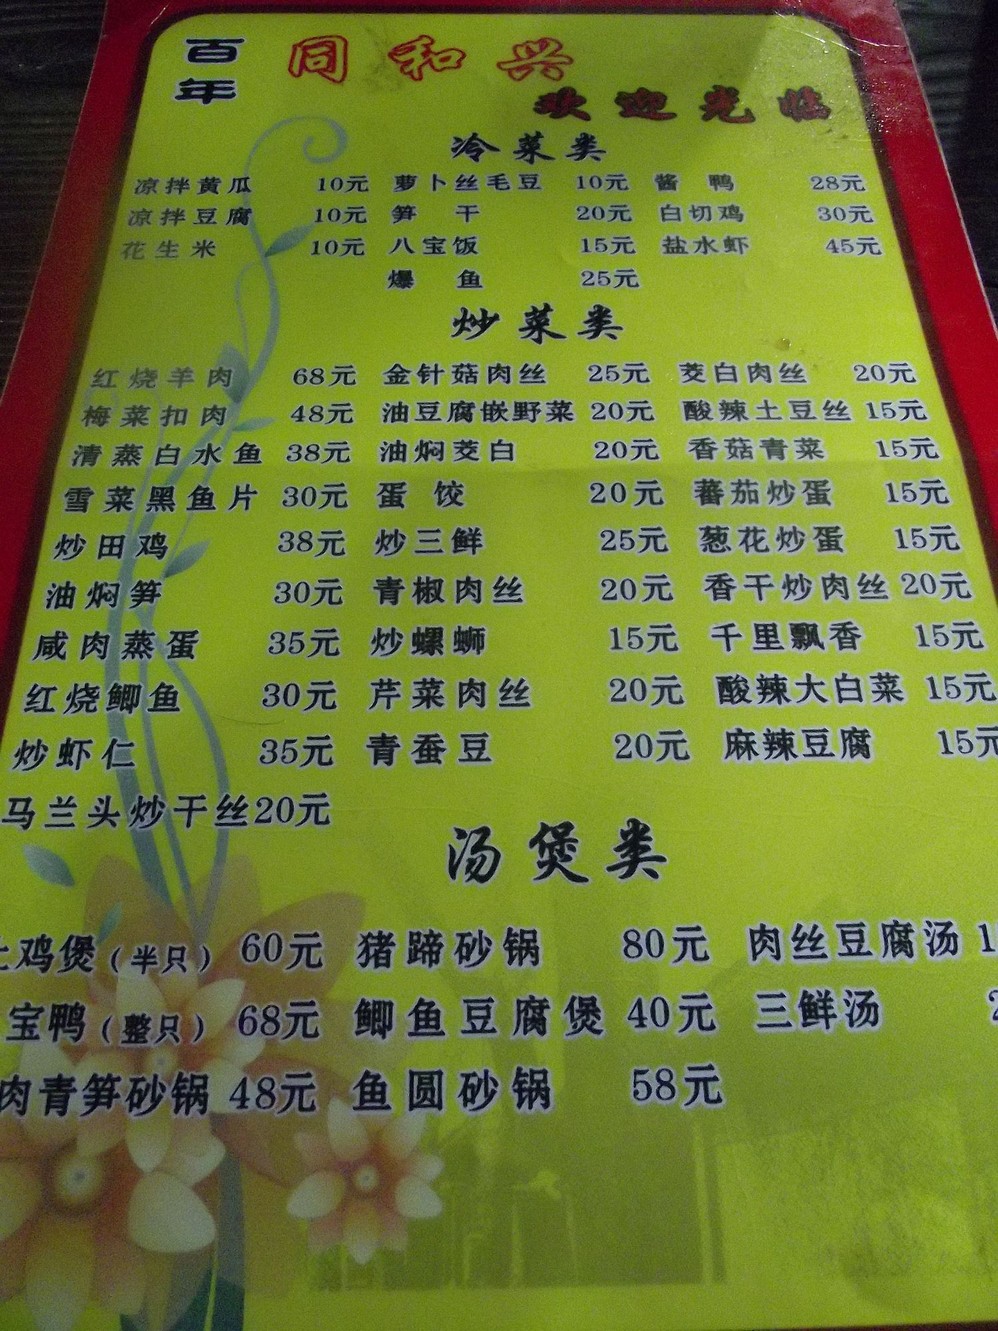 百年 同和兴
欢迎光临
冷菜类
凉拌黄瓜 10元 萝卜丝毛豆 10元 酱鸭 28元
凉拌豆腐 10元 笋干 20元 白切鸡 30元
花生米 10元 八宝饭 15元 盐水虾 45元
爆鱼 25元
炒菜类
红烧羊肉 68元 金针菇肉丝 25元 茭白肉丝 20元
梅菜扣肉 48元 油豆腐嵌野菜 20元 酸辣土豆丝 15元
清蒸白水鱼 38元 油焖茭白 20元 香菇青菜 15元
雪菜黑鱼片 30元 蛋饺 20元 蕃茄炒蛋 15元
炒田鸡 38元 炒三鲜 25元 葱花炒蛋 15元
油焖笋 30元 青椒肉丝 20元 香干炒肉丝 20元
咸肉蒸蛋 35元 炒螺蛳 15元 千里飘香 15元
红烧鲫鱼 30元 芹菜肉丝 20元 酸辣大白菜 15元
炒虾仁 35元 青蚕豆 20元 麻辣豆腐 15元
马兰头炒干丝 20元
汤煲类
土鸡煲(半只) 60元 猪蹄砂锅 80元 肉丝豆腐汤
宝鸭(整只) 68元 鲫鱼豆腐煲 40元 三鲜汤
肉青笋砂锅 48元 鱼圆砂锅 58元